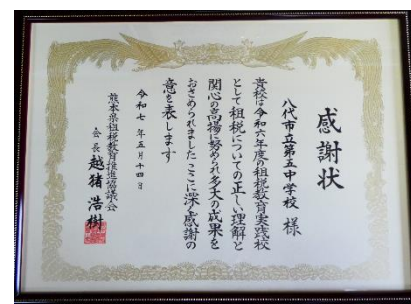 感謝状
八代市立第五中学校 様
貴校は令和六年度の租税教育実践校
として租税についての正しい理解と
関心の高揚に努められ多大の成果を
おさめられましたここに深く感謝の
意を表します
令和七年五月十四日
熊本県租税教育推進協議会
会長 越猪浩樹